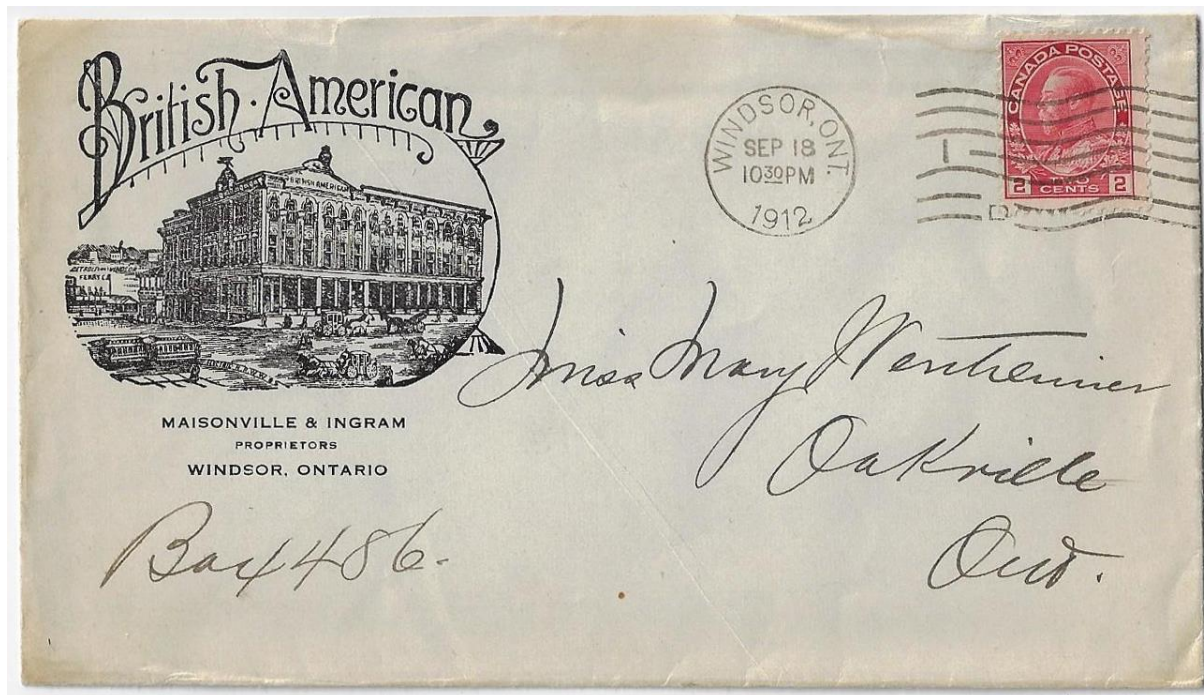 British · American
BRITISH AMERICAN
FERRY Co
MAISONVILLE & INGRAM
PROPRIETORS
WINDSOR, ONTARIO
WINDSOR, ONT.
SEP 18
10 30 PM
1912
CANADA POSTAGE
2 CENTS 2
Miss Mary Wertheimer
Oakville
Ont.
Box 486.